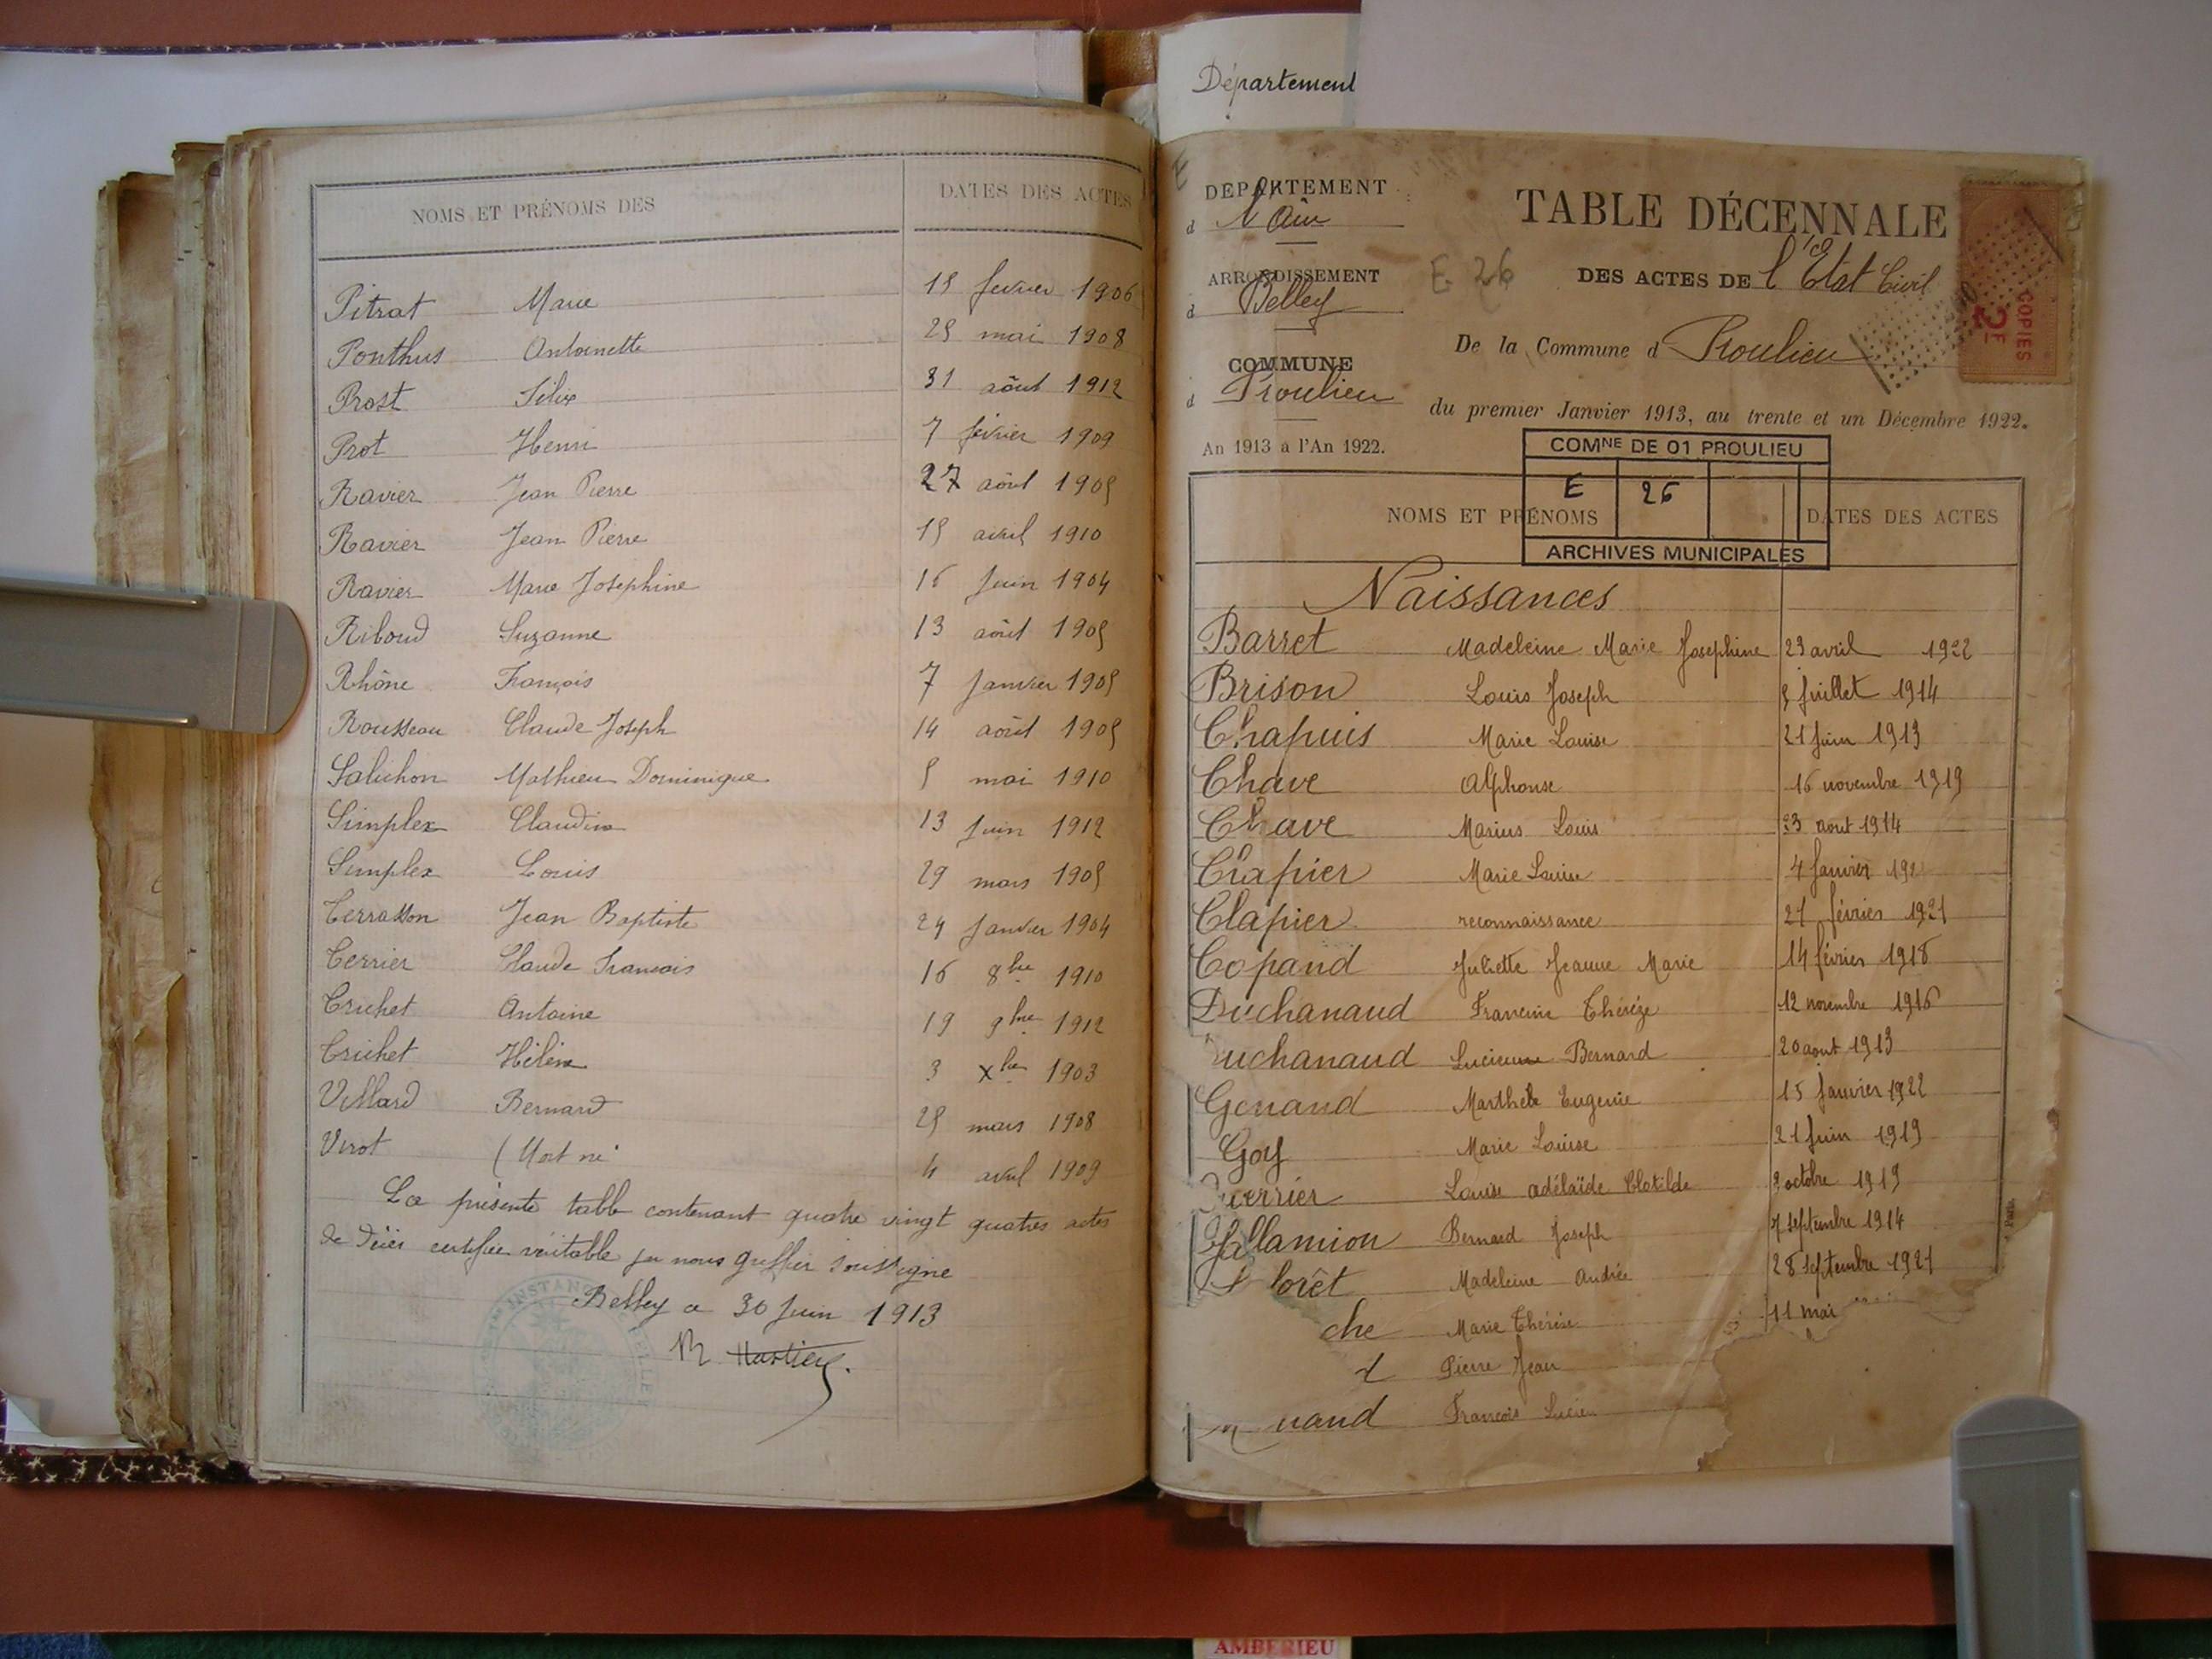 NOMS ET PRÉNOMS DES DATES DES ACTES
Pitrat Marie 15 fevrier 1906
Ponthus Antoinette 25 mai 1908
Prost Félix 31 août 1912
Prot Henri 7 février 1909
Ravier Jean Pierre 27 août 1905
Ravier Jean Pierre 15 avril 1910
Ravier Marie Josephine 16 Juin 1904
Riboud Suzanne 13 août 1905
Rhône François 7 Janvier 1905
Rousseau Claude Joseph 14 août 1905
Salichon Mathieu Dominique 5 mai 1910
Simplex Claudine 13 Juin 1912
Simplex Louis 29 mars 1905
Terrasson Jean Baptiste 24 Janvier 1904
Terrier Claude Francois 16 8bre 1910
Trichet Antoine 19 9bre 1912
Trichet Hélène 3 Xbre 1903
Villard Bernard 25 mars 1908
Virot (Mort né 4 avril 1909
La présente table contenant quatre vingt quatres actes
de Décès certifiée véritable par nous greffier soussigné
Belley ce 30 Juin 1913
INSTANCE
Département
DÉPARTEMENT
d l'Ain
ARRONDISSEMENT
d Belley
COMMUNE
d Proulieu
An 1913 à l'An 1922.
TABLE DÉCENNALE
E. 26 DES ACTES DE l'Etat Civil
De la Commune d Proulieu
du premier Janvier 1913, au trente et un Décembre 1922.
COPIES
2F
COMNE DE 01 PROULIEU
E 26
ARCHIVES MUNICIPALES
NOMS ET PRÉNOMS DATES DES ACTES
Naissances
Barret Madeleine Marie Josephine 23 avril 1922
Brison Louis Joseph 5 Juillet 1914
Chapuis Marie Louise 21 Juin 1913
Chave Alphonse 16 novembre 1919
Chave Marius Louis 23 aout 1914
Clapier Marie Louise 4 Janvier 192
Clapier reconnaissance 21 février 1921
Copand Juliette Jeanne Marie 14 février 1918
Duchanaud Francine Thérèze 12 novembre 1916
uchanaud Lucienne Bernard 20 aout 1913
Genand Marthele Eugenie 15 Janvier 1922
Goy Marie Louise 21 Juin 1919
uerrier Louise adélaïde Clotilde 2 octobre 1919
Jallamion Bernard Joseph 7 septembre 1914
lorêt Madeleine Andrée 28 septembre 1921
che Marie Thérèse 11 mai
t Pierre Jean
nand François Lucien
Paris
AMBERIEU